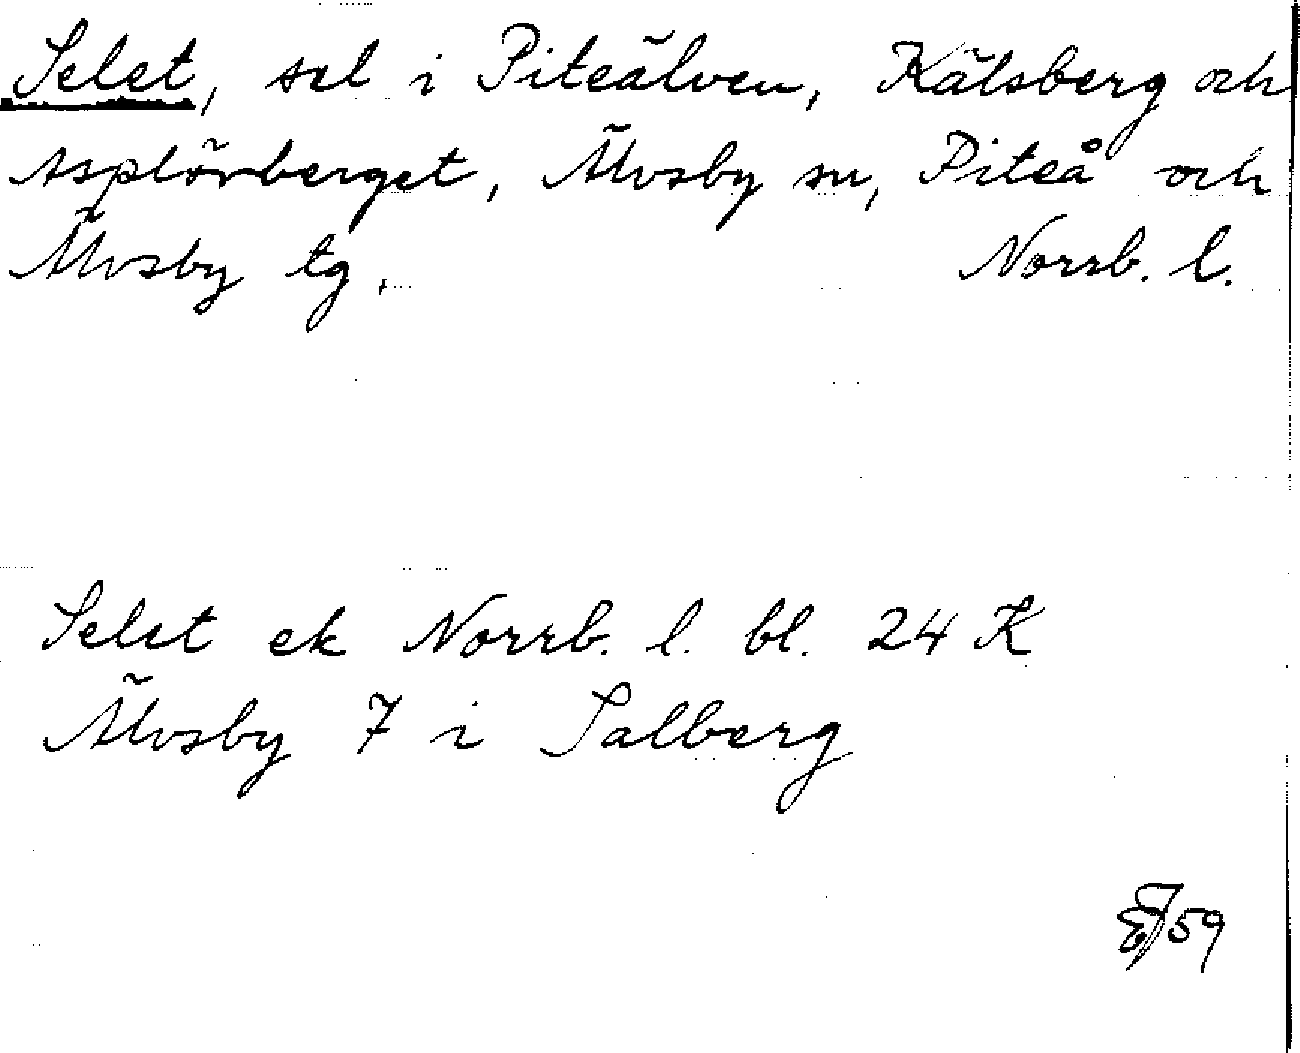 Selet, sel i Piteälven, Kälsberg och
Asplövberget, Älvsby sn, Piteå och
Älvsby tg. Norrb. l.
Selet ek Norrb. l. bl. 24 K
Älvsby 7 i Salberg
59